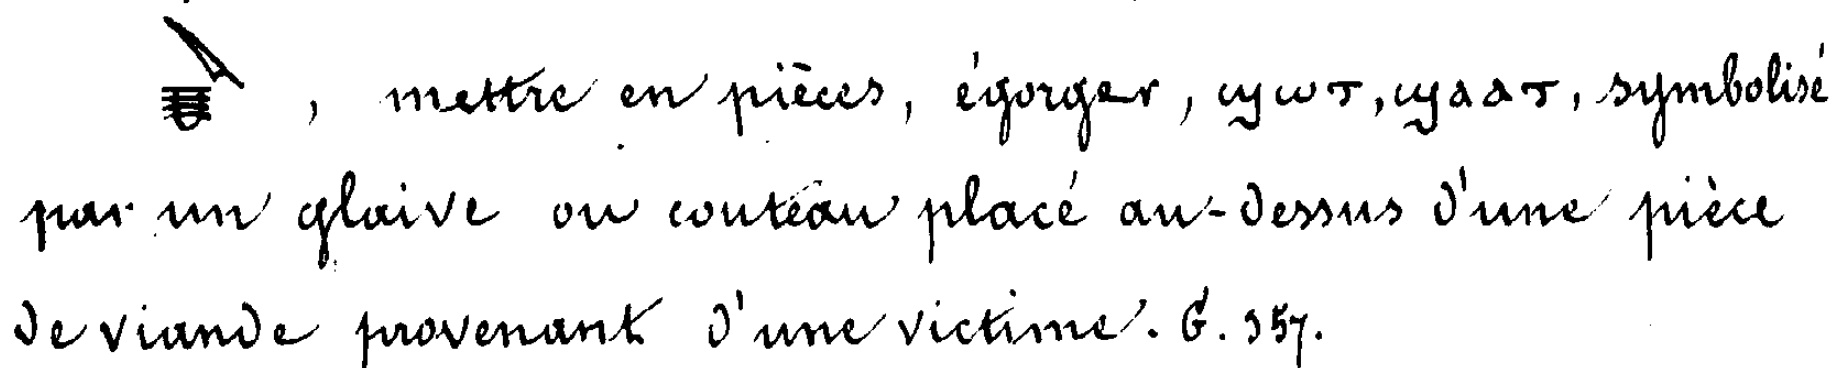 , mettre en pièces, égorger, ϣⲱⲧ, ϣⲁⲁⲧ, symbolisé
par un glaive ou couteau placé au-dessus d'une pièce
de viande provenant d'une victime. G. 357.